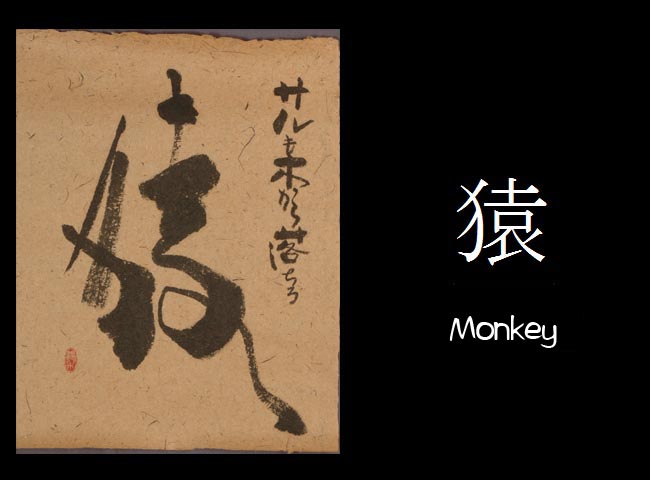 サルも木から落ちる
猿
猿
Monkey